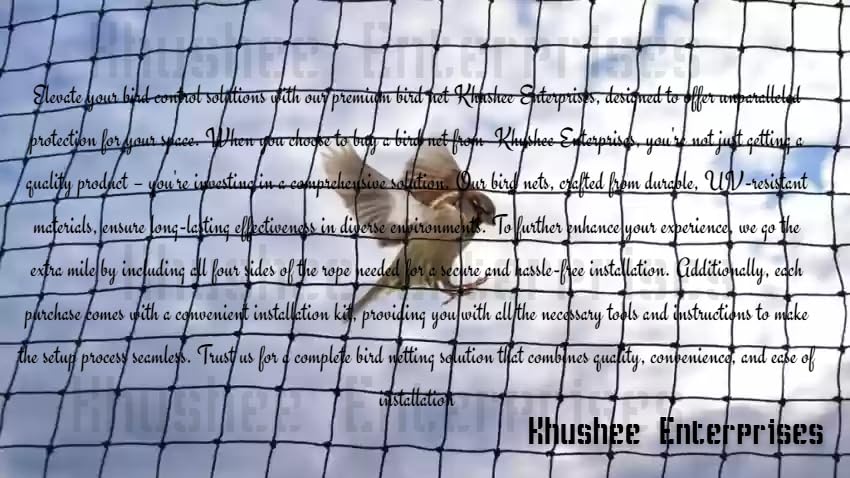 Khushee Enterprises
Elevate your bird control solutions with our premium bird net Khushee Enterprises, designed to offer unparalleled
protection for your space. When you choose to buy a bird net from Khushee Enterprises, you're not just getting a
quality product – you're investing in a comprehensive solution. Our bird nets, crafted from durable, UV-resistant
materials, ensure long-lasting effectiveness in diverse environments. To further enhance your experience, we go the
Khushee Enterprises
extra mile by including all four sides of the rope needed for a secure and hassle-free installation. Additionally, each
purchase comes with a convenient installation kit, providing you with all the necessary tools and instructions to make
the setup process seamless. Trust us for a complete bird netting solution that combines quality, convenience, and ease of
installation
Khushee Enterprises
Khushee Enterprises